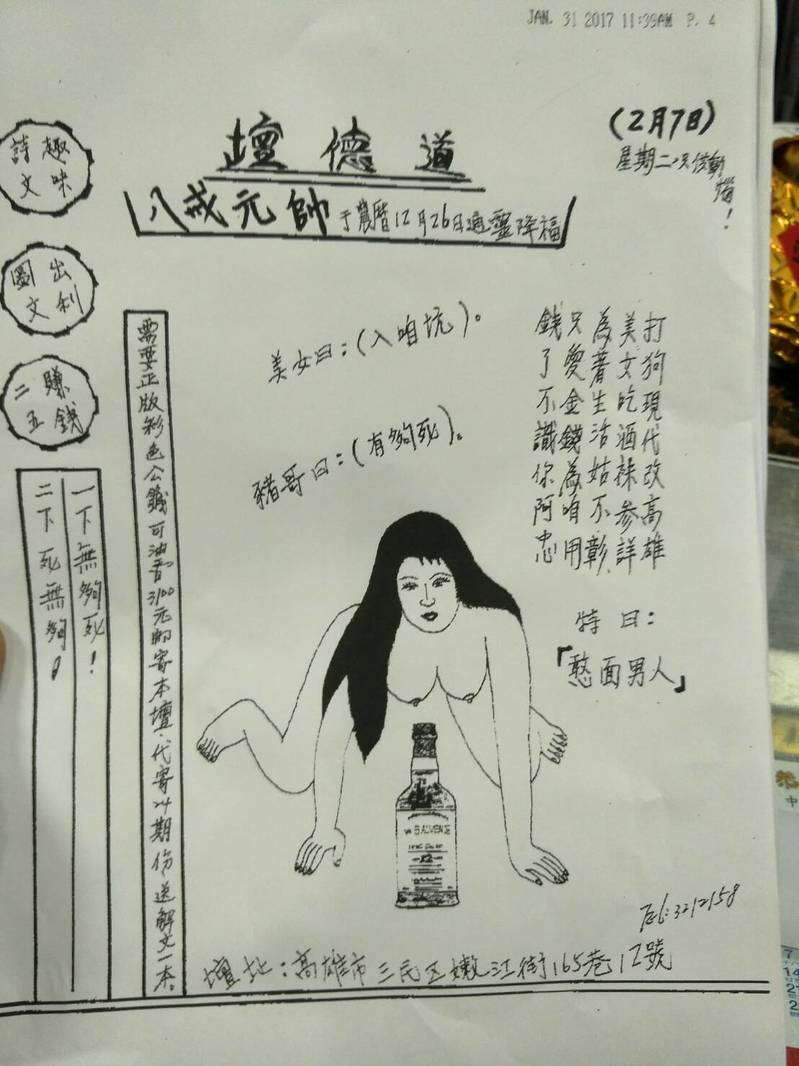 JAN. 31 2017 11:39AM P. 4
(2月7日)
道德壇
八戒元帥于農曆12月26日通靈降福
趣味
詩文
出刊
圖文
賺錢
二五
一下無夠死!
二下死無夠!
需要正版彩色公籤可油票3100元的寄本壇.代寄24期份.送解文一本.
美女曰:(入咱坑)。
豬哥曰:(有夠死)。
打狗現代改高雄
美女吃酒袜參詳
為著生活姑不彰
只愛金錢為咱用
錢了不識你阿忠
特曰:
「憨面男人」
BALVENIE
12
Tel:3212158
壇址:高雄市三民区嫩江街165巷12號
7
14
21
2
中